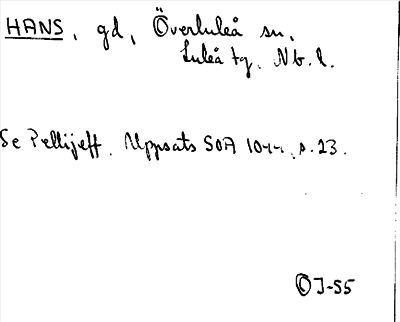 HANS, gd, Överluleå sn,
Luleå tg. Nb. l.
Se Pellijeff. Uppsats SOA 1044, s. 23.
OJ-55